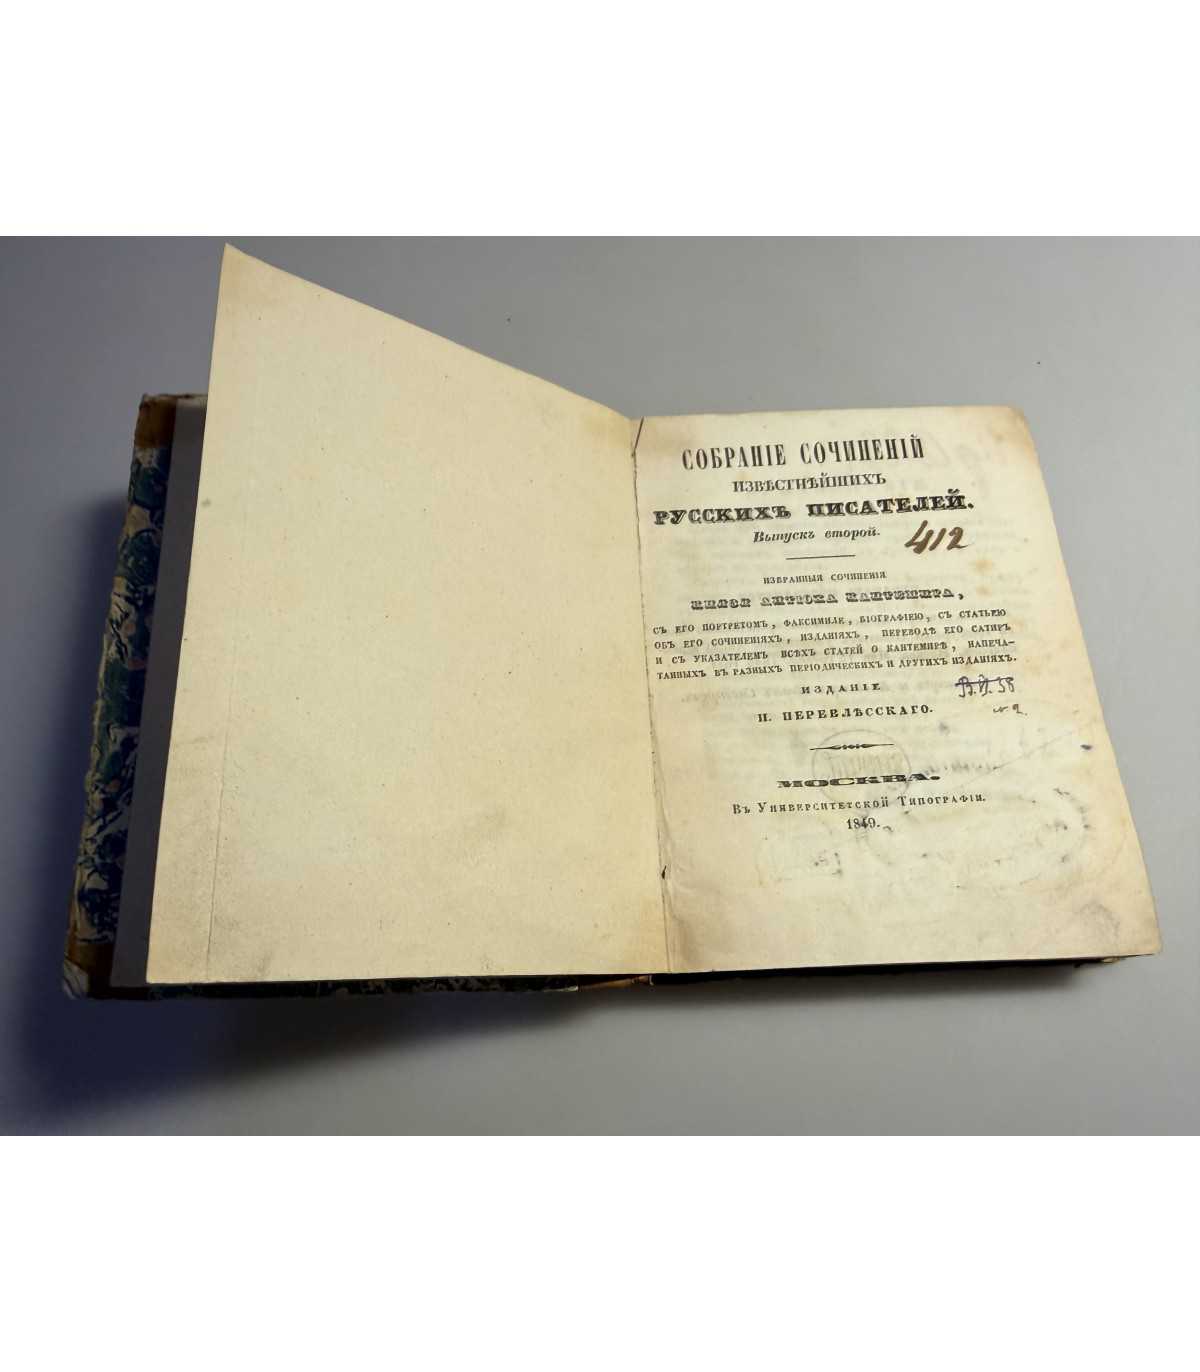 СОБРАНІЕ СОЧИНЕНІЙ
ИЗВѢСТНѢЙШИХЪ
РУССКИХЪ ПИСАТЕЛЕЙ.
Выпускъ второй.
412
ИЗБРАННЫЯ СОЧИНЕНІЯ
КНЯЗЯ АНТІОХА КАНТЕМИРА,
СЪ ЕГО ПОРТРЕТОМЪ, ФАКСИМИЛЕ, БІОГРАФІЕЮ, СЪ СТАТЬЕЮ
ОБЪ ЕГО СОЧИНЕНІЯХЪ, ИЗДАНІЯХЪ, ПЕРЕВОДѢ ЕГО САТИРЪ
И СЪ УКАЗАТЕЛЕМЪ ВСѢХЪ СТАТЕЙ О КАНТЕМИРѢ, НАПЕЧА-
ТАННЫХЪ ВЪ РАЗНЫХЪ ПЕРІОДИЧЕСКИХЪ И ДРУГИХЪ ИЗДАНІЯХЪ.
ИЗДАНІЕ
П. ПЕРЕВЛѢССКАГО.
МОСКВА.
Въ Университетской Типографіи.
1849.